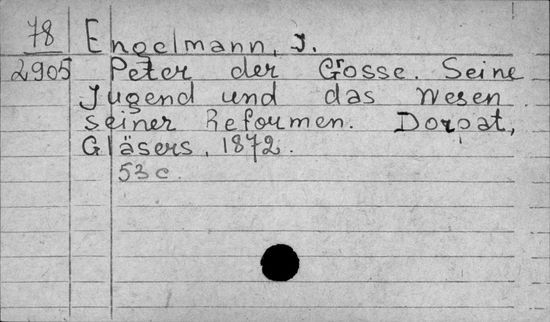 78 Engelmann, J.
2905 Peter der Grosse. Seine
Jugend und das Wesen
seiner Reformen. Dorpat,
Gläsers, 1872.
53 c.